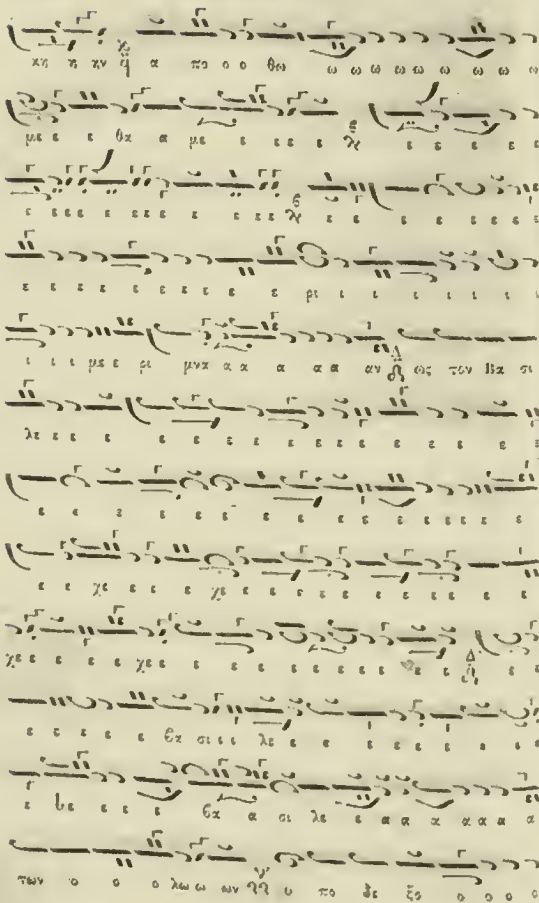 χη η κν ᾳ α πο ο ο θω ω ω ω ω ω ω ω ω
με ε ε θα α με ε ε ε ε ε ε ε ε ε ε
ε ε ε ε ε ε ε ε ε ε ε ε ε ε ε ε ε
ε ε ε ε ε ε ε ε ε ε ρι ι ι ι ι ι ι ι
ι ι ι με ε ρι μνα α α α α α αν Δ ως τον Βα σι
λε ε ε ε ε ε ε ε ε ε ε ε ε ε ε ε
ε ε ε ε ε ε ε ε ε ε ε ε ε ε ε ε
ε ε χε ε ε ε χε ε ε ε ε ε ε ε ε ε ε
χε ε ε ε ε χε ε ε ε ε ε ε ε ε ε ε ε ε Δ ε ε
ε ε ε ε ε βα σι ι ι λε ε ε ε ε ε ε ε ε ε
ε βε ε ε ε βα α σι λε ε α α α α α α α
των ο ο ο λω ω ων υ πο δε ξο ο ο ο ο